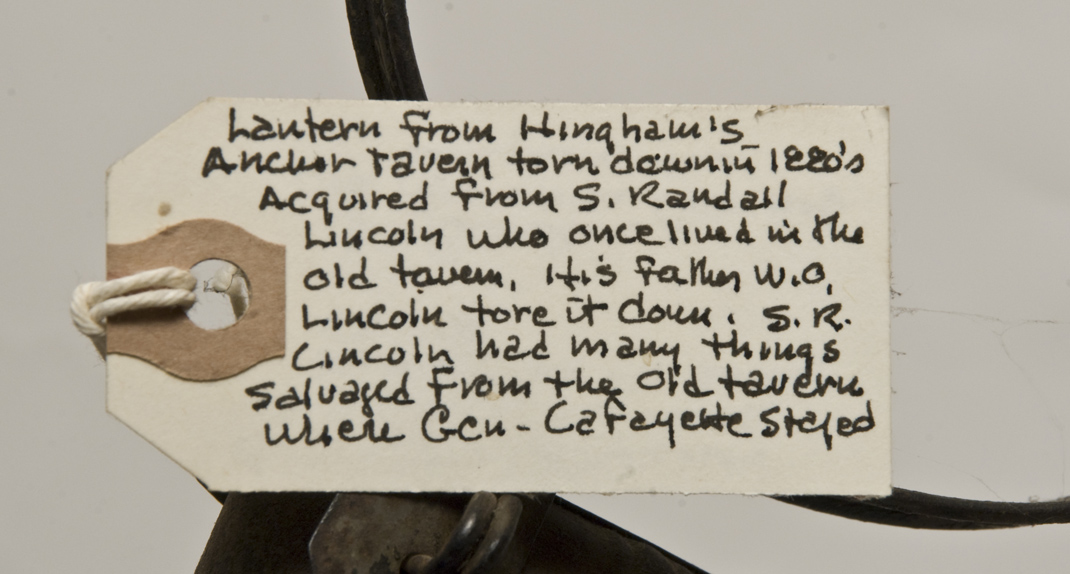 Lantern from Hingham's
Anchor Tavern torn down in 1880's
Acquired from S. Randall
Lincoln who once lived in the
old tavern. His father W.O.
Lincoln tore it down. S. R.
Lincoln had many things
salvaged from the old tavern
where Gen - Lafayette stayed